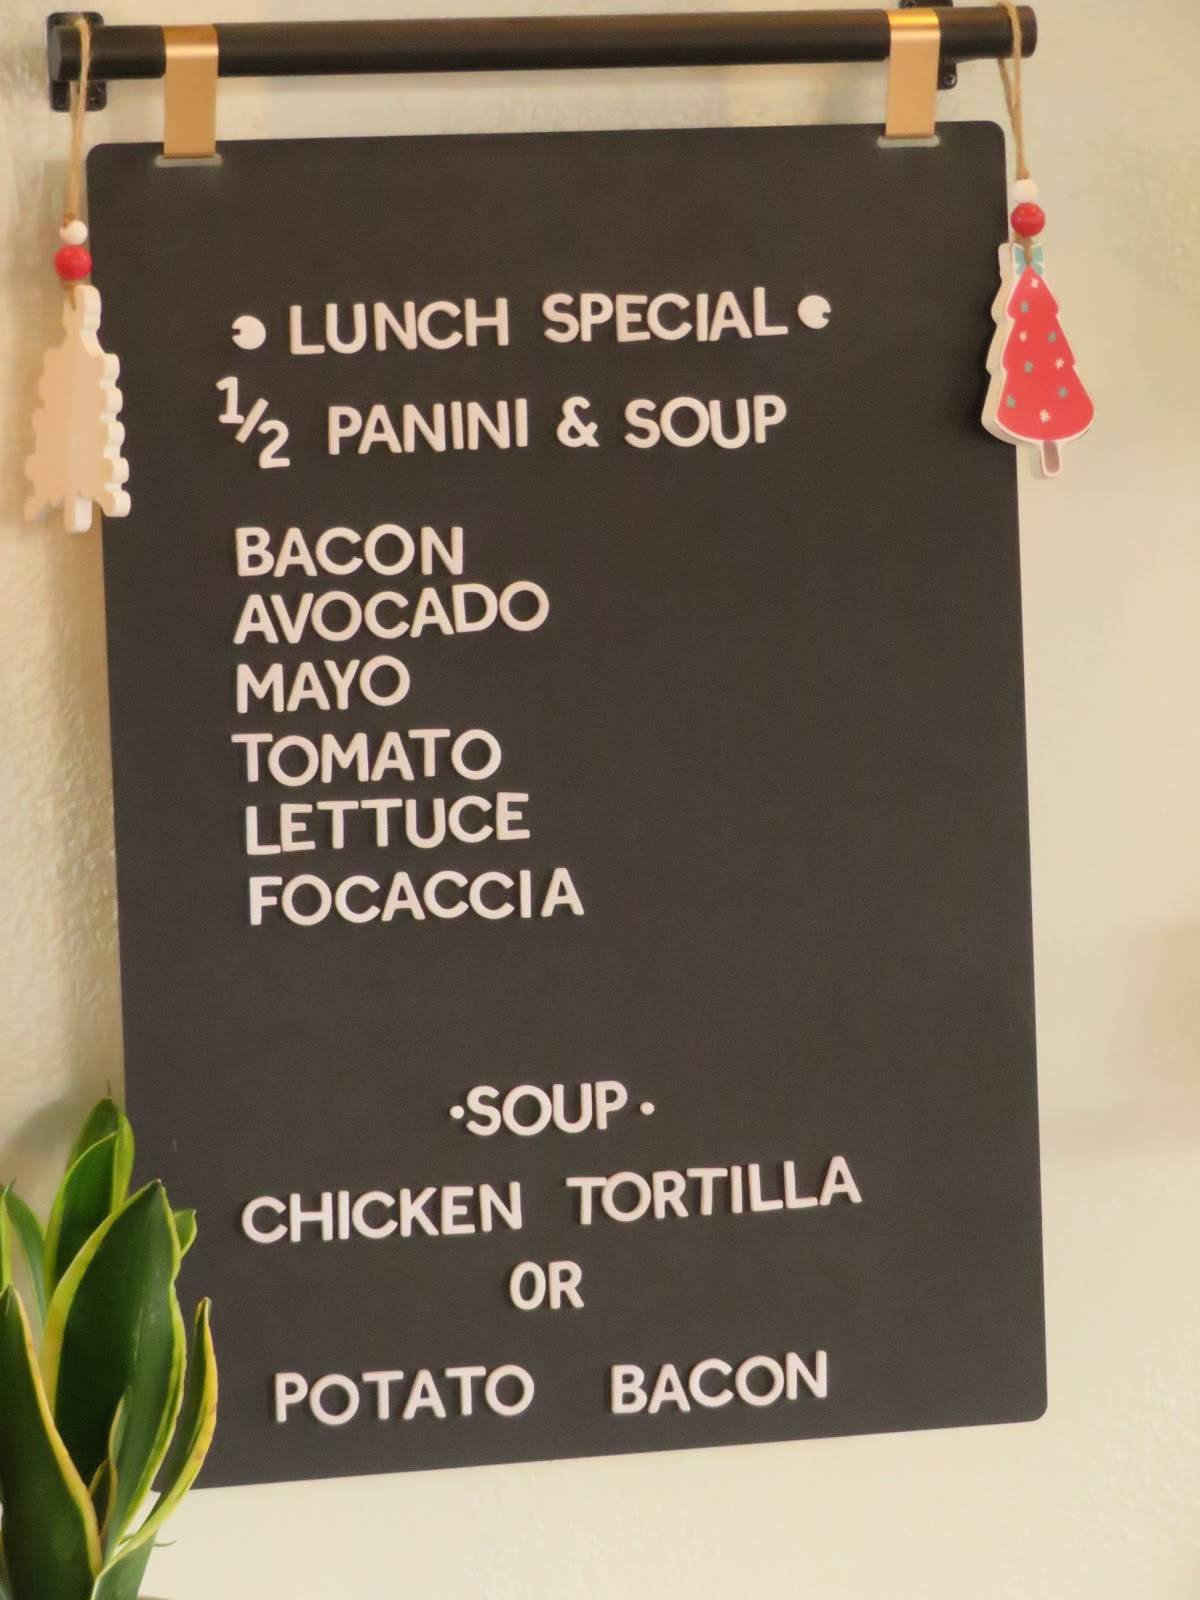 • LUNCH SPECIAL •
1/2 PANINI & SOUP
BACON
AVOCADO
MAYO
TOMATO
LETTUCE
FOCACCIA
•SOUP•
CHICKEN TORTILLA
OR
POTATO BACON